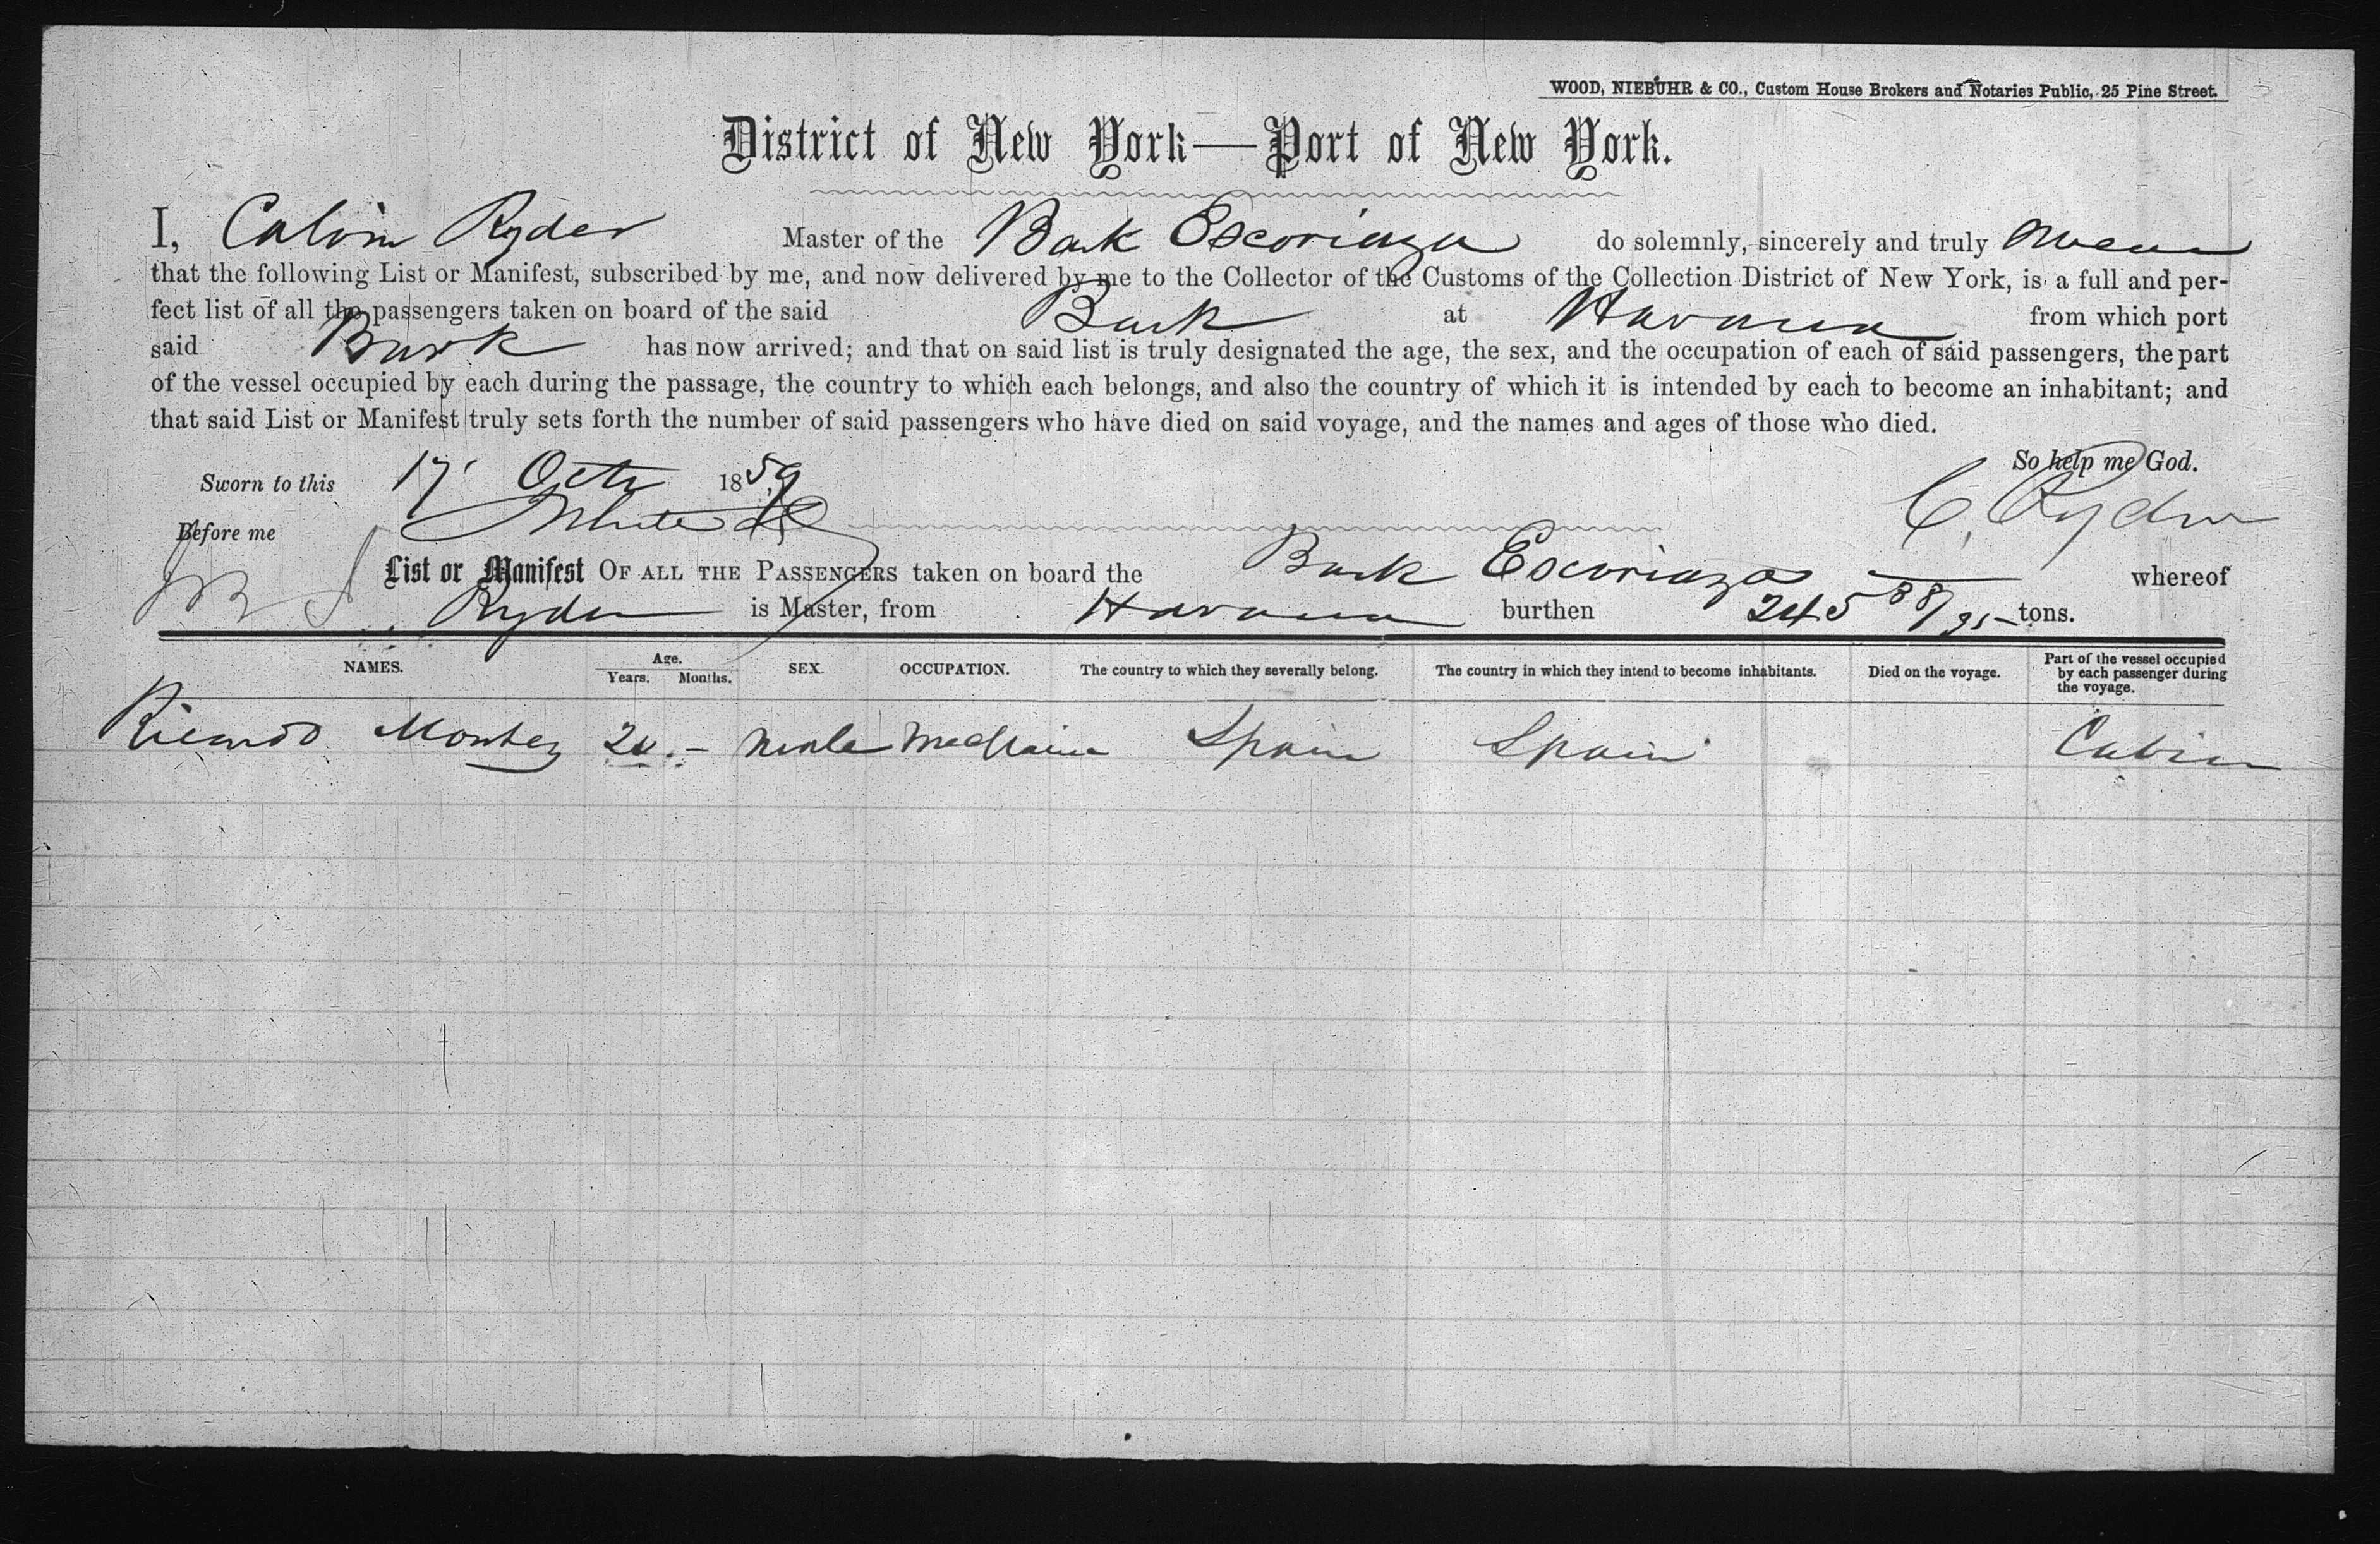 WOOD, NIEBUHR & CO., Custom House Brokers and Notaries Public, 25 Pine Street.
District of New York—Port of New York.
I, Calvin Ryder Master of the Bark Escoriaza do solemnly, sincerely and truly swear
that the following List or Manifest, subscribed by me, and now delivered by me to the Collector of the Customs of the Collection District of New York, is a full and per-
fect list of all the passengers taken on board of the said Bark at Havana from which port
said Bark has now arrived; and that on said list is truly designated the age, the sex, and the occupation of each of said passengers, the part
of the vessel occupied by each during the passage, the country to which each belongs, and also the country of which it is intended by each to become an inhabitant; and
that said List or Manifest truly sets forth the number of said passengers who have died on said voyage, and the names and ages of those who died.
So help me God.
Sworn to this 17 Octr 1859
C. Ryder
Before me
List or Manifest OF ALL THE PASSENGERS taken on board the Bark Escoriaza whereof
Ryder is Master, from Havana burthen 245 88/95 tons.
NAMES. Age. Years. Months. SEX. OCCUPATION. The country to which they severally belong. The country in which they intend to become inhabitants. Died on the voyage. Part of the vessel occupied by each passenger during the voyage.
Ricardo Montez - Male Spain Spain Cabin